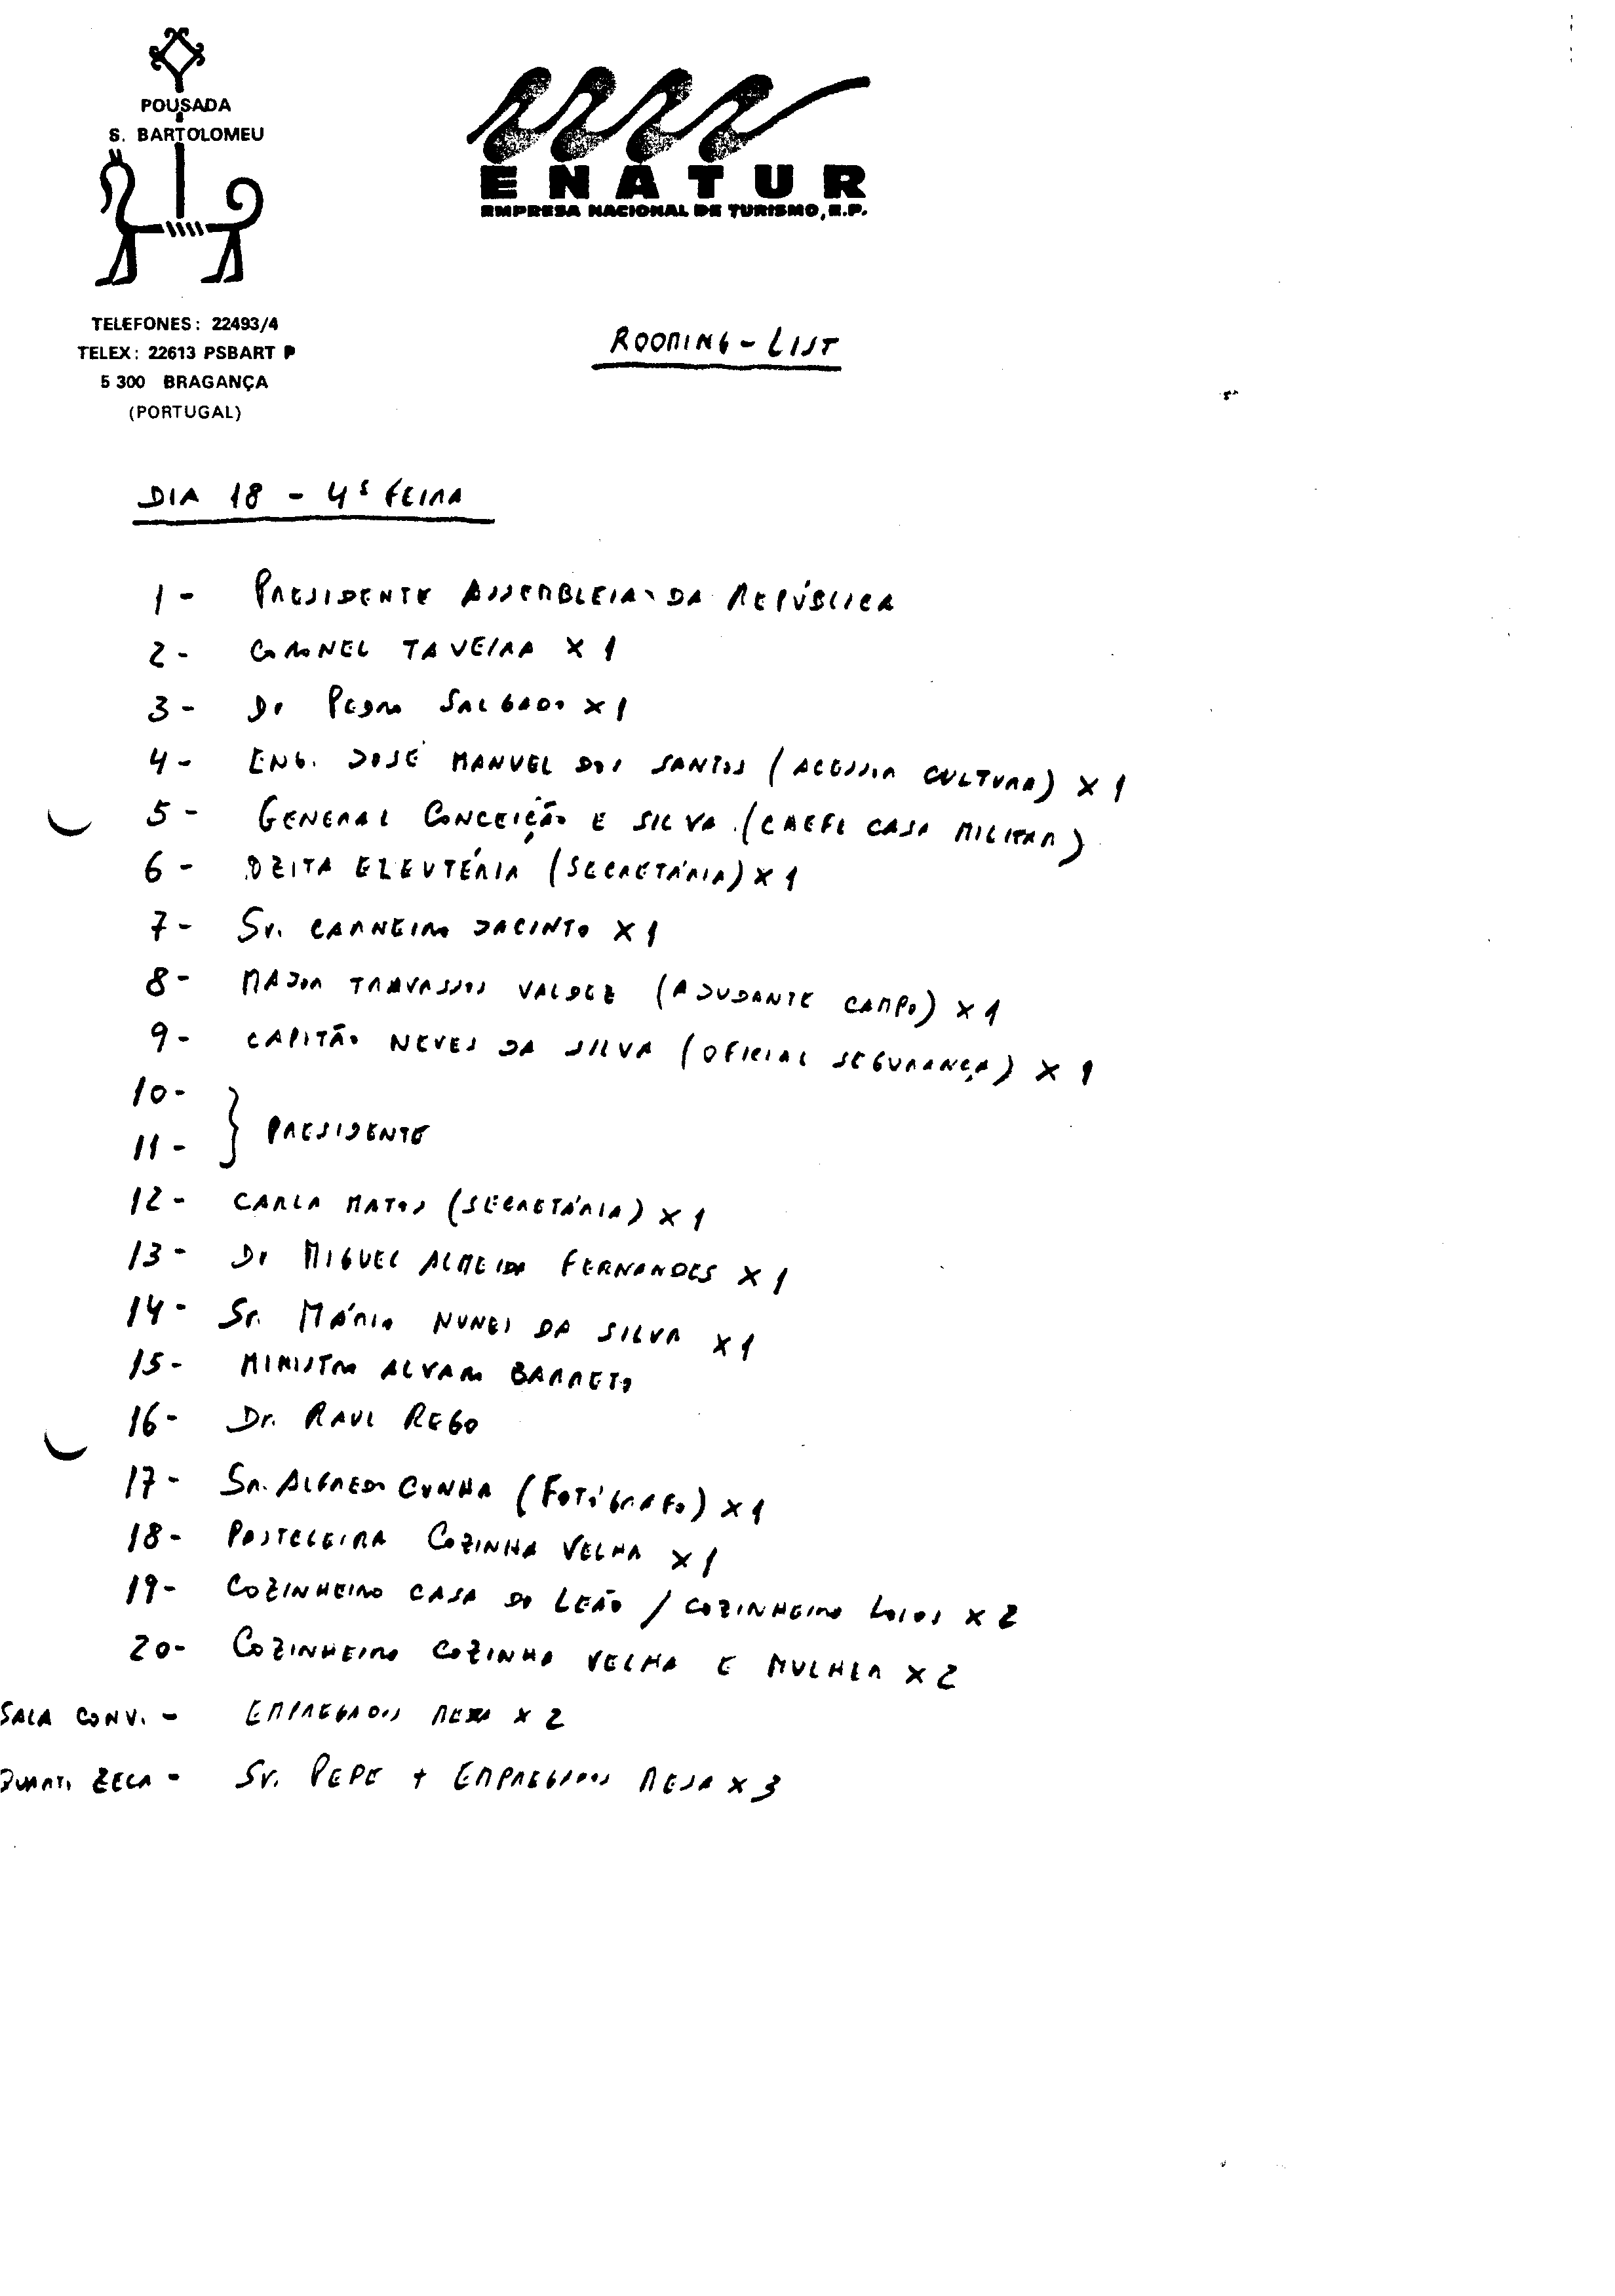 POUSADA
S. BARTOLOMEU
TELEFONES: 22493/4
TELEX: 22613 PSBART P
5 300 BRAGANÇA
(PORTUGAL)
ENATUR
EMPRESA NACIONAL DE TURISMO, E.P.
ROOMING - LIST
DIA 18 - 4ª FEIRA
1 - PRESIDENTE ASSEMBLEIA DA REPÚBLICA
2 - CORONEL TAVEIRA X 1
3 - Dr PEDRO SALGADO X 1
4 - ENG. JOSÉ MANUEL DOS SANTOS (ACESSOR CULTURA) X 1
5 - GENERAL CONCEIÇÃO E SILVA (CHEFE CASA MILITAR)
6 - OZITA ELEUTÉRIA (SECRETÁRIA) X 1
7 - Sr. CARNEIRO JACINTO X 1
8 - MAJOR TRAVASSOS VALDEZ (AJUDANTE CAMPO) X 1
9 - CAPITÃO NEVES DA SILVA (OFICIAL SEGURANÇA) X 1
10 -
11 - } PRESIDENTE
12 - CARLA MATOS (SECRETÁRIA) X 1
13 - Dr MIGUEL ALMEIDA FERNANDES X 1
14 - Sr. MÁRIO NUNES DA SILVA X 1
15 - MINISTRO ALVARO BARRETO
16 - Dr. RAUL REGO
17 - SR. ALFREDO CUNHA (FOTÓGRAFO) X 1
18 - PASTELEIRA COZINHA VELHA X 1
19 - COZINHEIRO CASA DO LEÃO / COZINHEIRO LOIOS X 2
20 - COZINHEIRO COZINHA VELHA E MULHER X 2
SALA CONV. - EMPREGADOS MESA X 2
ZECA - Sr. PEPE + EMPREGADOS MESA X 3